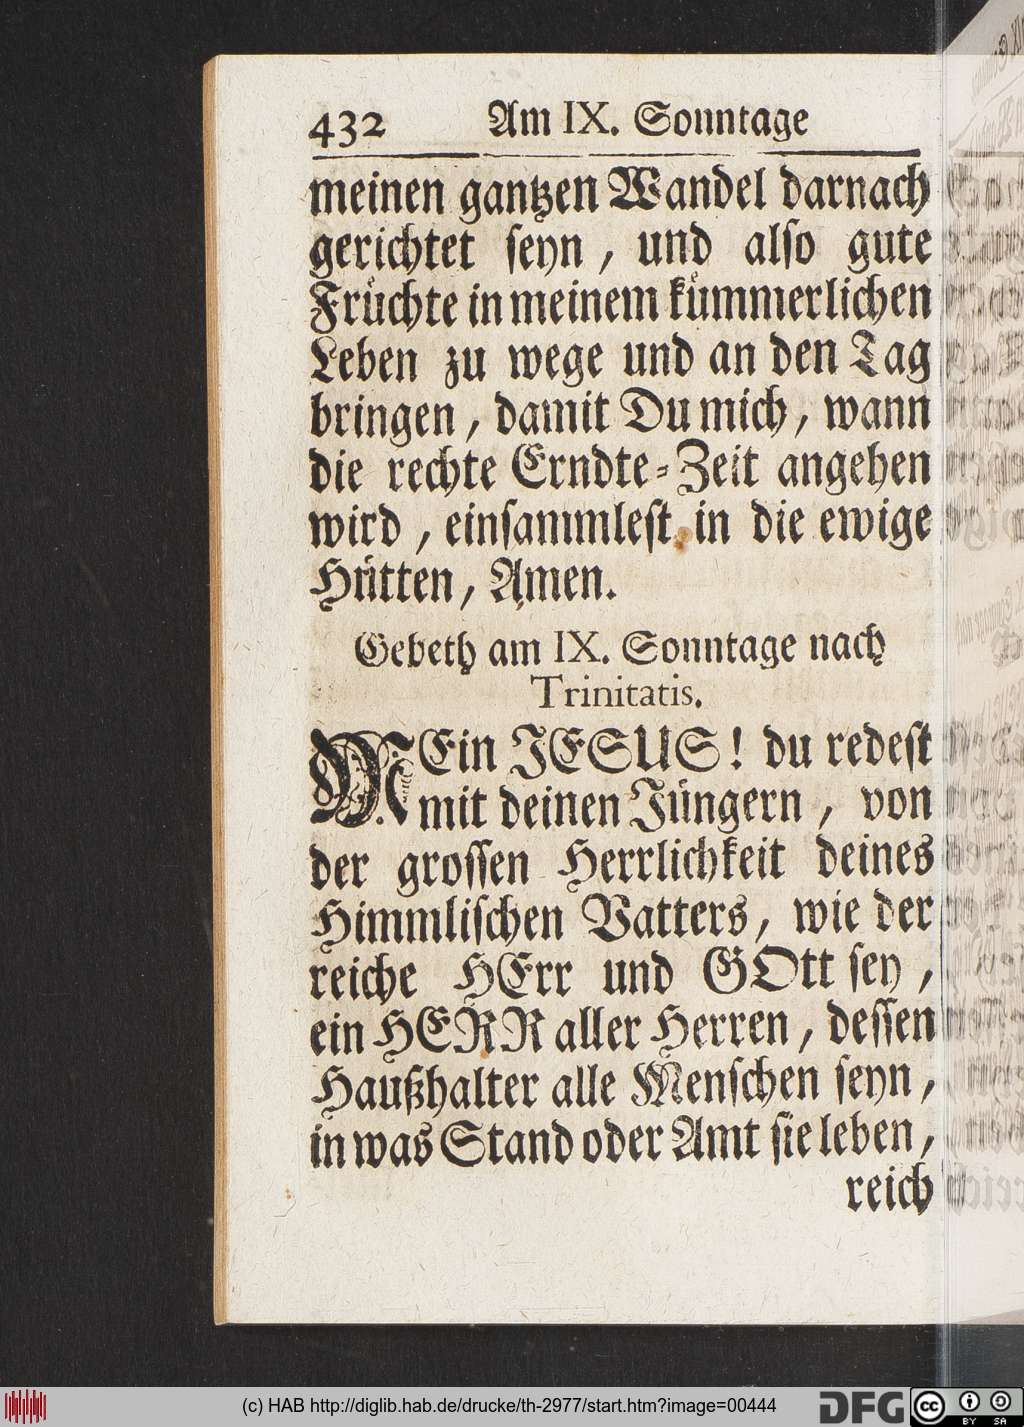 432 Am IX. Sonntage
meinen gantzen Wandel darnach
gerichtet seyn, und also gute
Früchte in meinem kümmerlichen
Leben zu wege und an den Tag
bringen, damit Du mich, wann
die rechte Erndte-Zeit angehen
wird, einsammlest in die ewige
Hütten, Amen.
Gebeth am IX. Sonntage nach
Trinitatis.
MEin JESUS! du redest
mit deinen Jüngern, von
der grossen Herrlichkeit deines
Himmlischen Vatters, wie der
reiche HErr und GOtt sey,
ein HERR aller Herren, dessen
Haußhalter alle Menschen seyn,
in was Stand oder Amt sie leben,
reich
(c) HAB http://diglib.hab.de/drucke/th-2977/start.htm?image=00444
DFG
cc BY SA